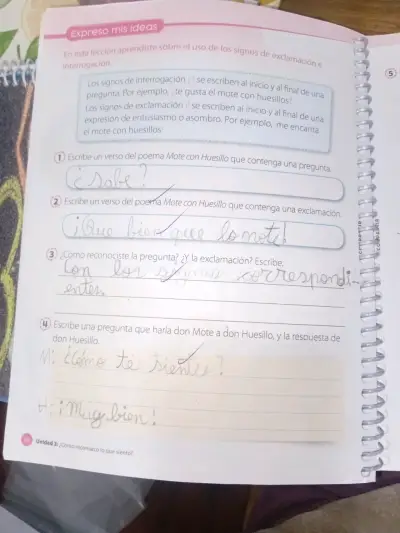 Expreso mis ideas
En esta lección aprendiste sobre el uso de los signos de exclamación e
interrogación.
Los signos de interrogación ¿? se escriben al inicio y al final de una
pregunta. Por ejemplo, ¿te gusta el mote con huesillos?
Los signos de exclamación ¡! se escriben al inicio y al final de una
expresión de entusiasmo o asombro. Por ejemplo, ¡me encanta
el mote con huesillos!
1 Escribe un verso del poema Mote con Huesillo que contenga una pregunta.
¿Sabe?
2 Escribe un verso del poema Mote con Huesillo que contenga una exclamación.
¡Que bien que lo noté!
3 ¿Cómo reconociste la pregunta? ¿Y la exclamación? Escribe.
Con los signos correspondi-
entes.
4 Escribe una pregunta que haría don Mote a don Huesillo, y la respuesta de
don Huesillo.
M: ¿Cómo te sientes?
H: ¡Muy bien!
Unidad 3: ¿Cómo reconozco lo que siento?
5